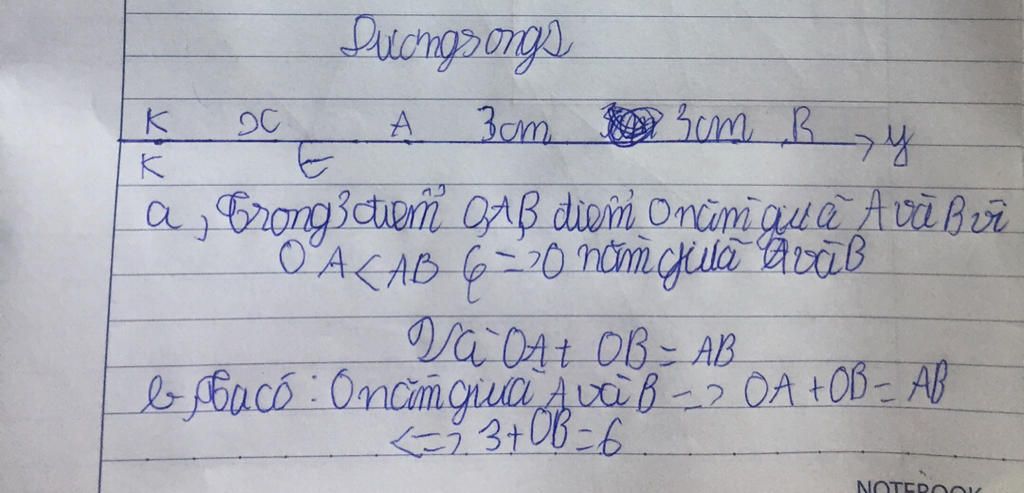 Duongsong
K x A 3cm 3cm B y
K E
a, Trong 3 điểm O,A,B điểm O nằm giữa A và B vì
OA < AB => O nằm giữa A và B
Và OA + OB = AB
b, Ta có : O nằm giữa A và B => OA + OB = AB
<=> 3 + OB = 6
NOTEBOOK